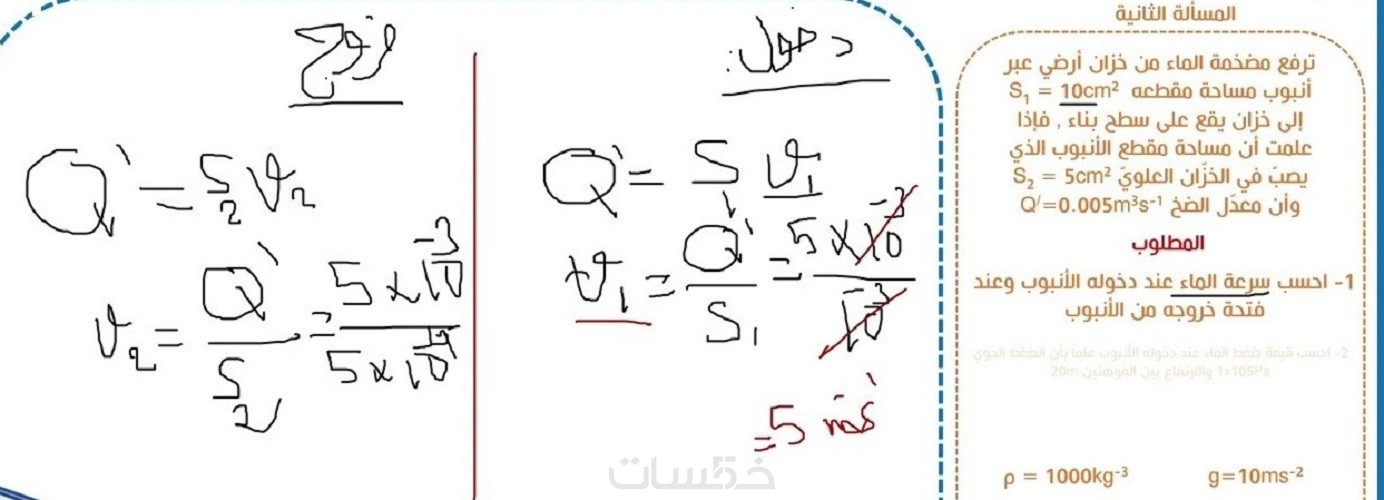 المسألة الثانية
ترفع مضخمة الماء من خزان أرضي عبر
أنبوب مساحة مقطعه S₁ = 10cm²
إلى خزان يقع على سطح بناء , فإذا
علمت أن مساحة مقطع الأنبوب الذي
يصبّ في الخزّان العلويّ S₂ = 5cm²
وأن معدّل الضخ Q′=0.005m³s⁻¹
المطلوب
1- احسب سرعة الماء عند دخوله الأنبوب وعند
فتحة خروجه من الأنبوب
2- احسب قيمة ضغط الماء عند دخوله الأنبوب علما بأن الضغط الجوي
1x105Pa والارتفاع بين الفوهتين 20m
ρ = 1000kg⁻³ g=10ms⁻²
دخول:
Q' = S₁ v₁
v₁ = Q'/S₁ = 5 × 10⁻³ / 10⁻³
= 5 ms⁻¹
Q' = S₂ v₂
v₂ = Q'/S₂ = 5 × 10⁻³ / 5 × 10⁻⁴
خمسات